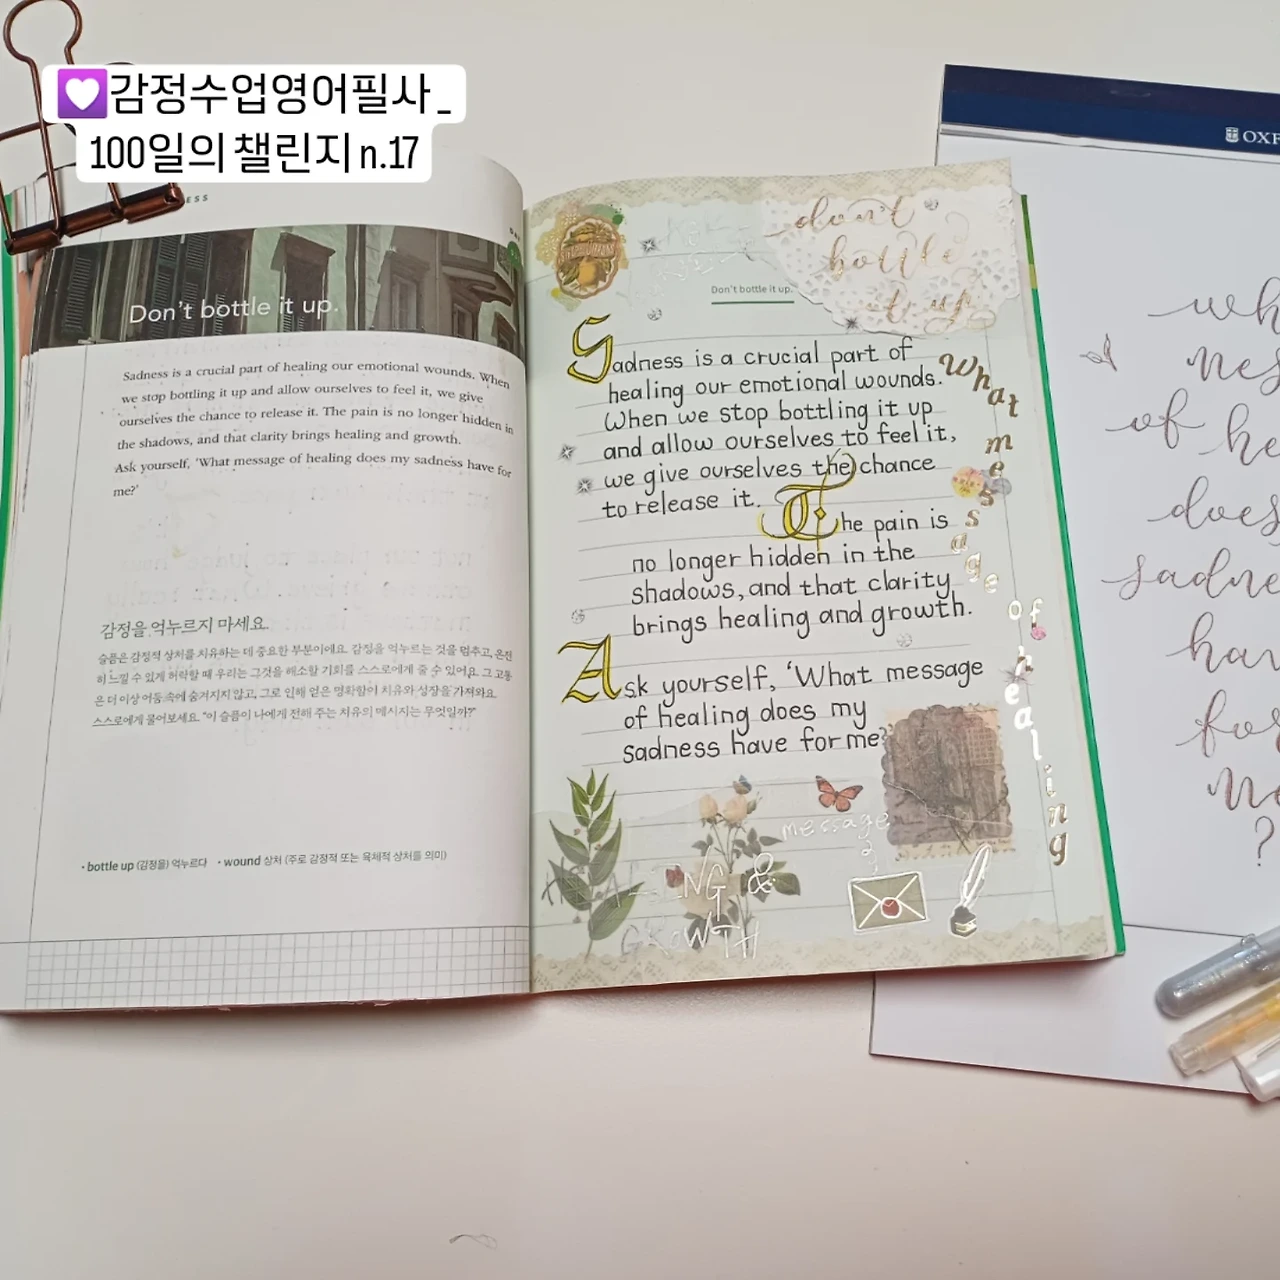 💟감정수업영어필사_
100일의 챌린지 n.17
DAY
Don't bottle it up.
Sadness is a crucial part of healing our emotional wounds. When
we stop bottling it up and allow ourselves to feel it, we give
ourselves the chance to release it. The pain is no longer hidden in
the shadows, and that clarity brings healing and growth.
Ask yourself, 'What message of healing does my sadness have for
me?'
감정을 억누르지 마세요.
슬픔은 감정적 상처를 치유하는 데 중요한 부분이에요. 감정을 억누르는 것을 멈추고, 온전
히 느낄 수 있게 허락할 때 우리는 그것을 해소할 기회를 스스로에게 줄 수 있어요. 그 고통
은 더 이상 어둠 속에 숨겨지지 않고, 그로 인해 얻은 명확함이 치유와 성장을 가져와요.
스스로에게 물어보세요. "이 슬픔이 나에게 전해 주는 치유의 메시지는 무엇일까?"
• bottle up (감정을) 억누르다 • wound 상처 (주로 감정적 또는 육체적 상처를 의미)
don't
bottle
it up
Don't bottle it up.
Sadness is a crucial part of
healing our emotional wounds.
When we stop bottling it up
and allow ourselves to feel it,
we give ourselves the chance
to release it. The pain is
no longer hidden in the
shadows, and that clarity
brings healing and growth.
Ask yourself, 'What message
of healing does my
sadness have for me?
What message of healing
message
HEALING &
GROWTH
of
does
for
?